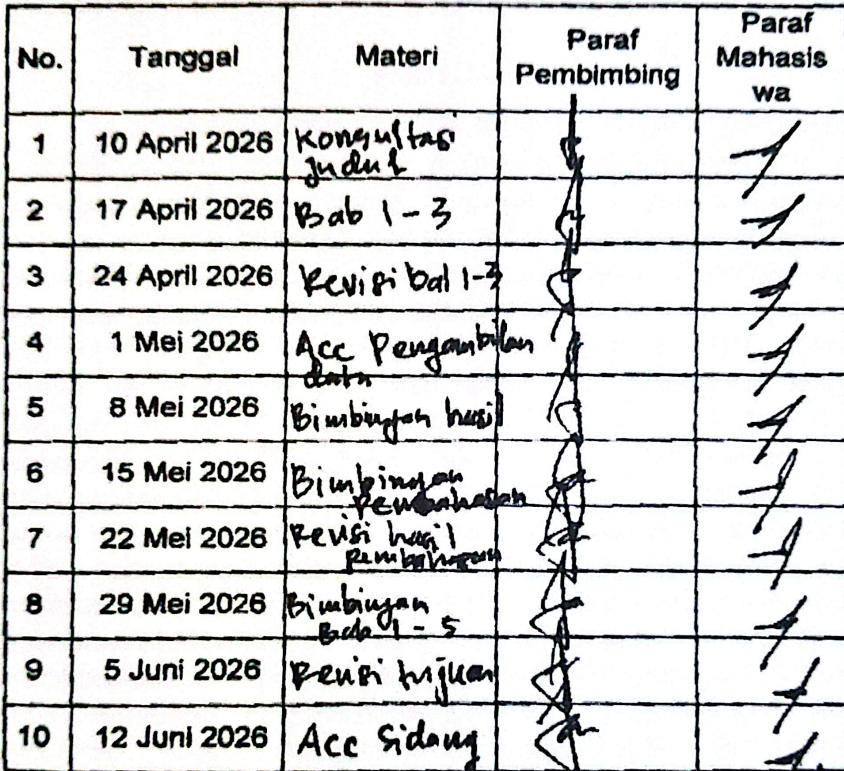 No. Tanggal Materi Paraf Pembimbing Paraf Mahasis wa
1 10 April 2026 Konsultasi judul
2 17 April 2026 Bab 1 - 3
3 24 April 2026 Revisi bab 1-3
4 1 Mei 2026 Acc Pengambilan data
5 8 Mei 2026 Bimbingan hasil
6 15 Mei 2026 Bimbingan Pembahasan
7 22 Mei 2026 Revisi hasil pembahasan
8 29 Mei 2026 Bimbingan Bab 1 - 5
9 5 Juni 2026 Revisi
10 12 Juni 2026 Acc Sidang